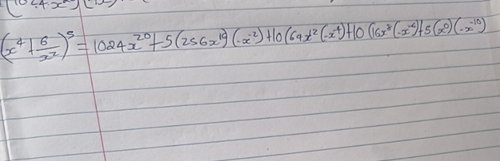 (x⁴ + 6/x²)⁵ = 1024x²⁰ + 5(256x¹⁶)(-x⁻²) + 10(64x¹²(-x⁻⁴) + 10(16x⁸(-x⁻⁶) + 5(x⁰)(-x⁻¹⁰)